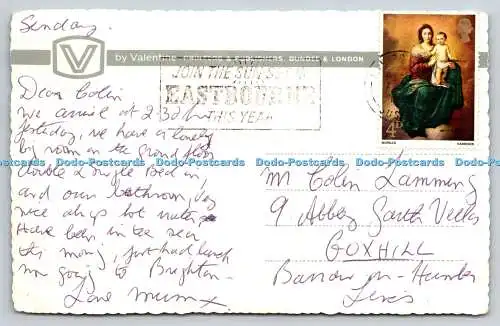 Sunday.
V
by Valentine CREATORS & PUBLISHERS, DUNDEE & LONDON
JOIN THE SUN SET IN
EASTBOURNE
THIS YEAR
4D
MURILLO
HARRISON
Dear Colin
we arrive at 2.30
yesterday, we have a lovely
big room on the ground floor
double & single bed in,
and our bathroom,
nice always hot water,
Have been in the sea
this morning, just had lunch
now going to Brighton
Love Mum x
Dodo-Postcards Dodo-Postcards Dodo-Postcards Dodo-Postcards Dodo-Postcards
Mr Colin Lamming
9 Abbey Garth Villas
GOXHILL
Barrow on-Humber
Lincs